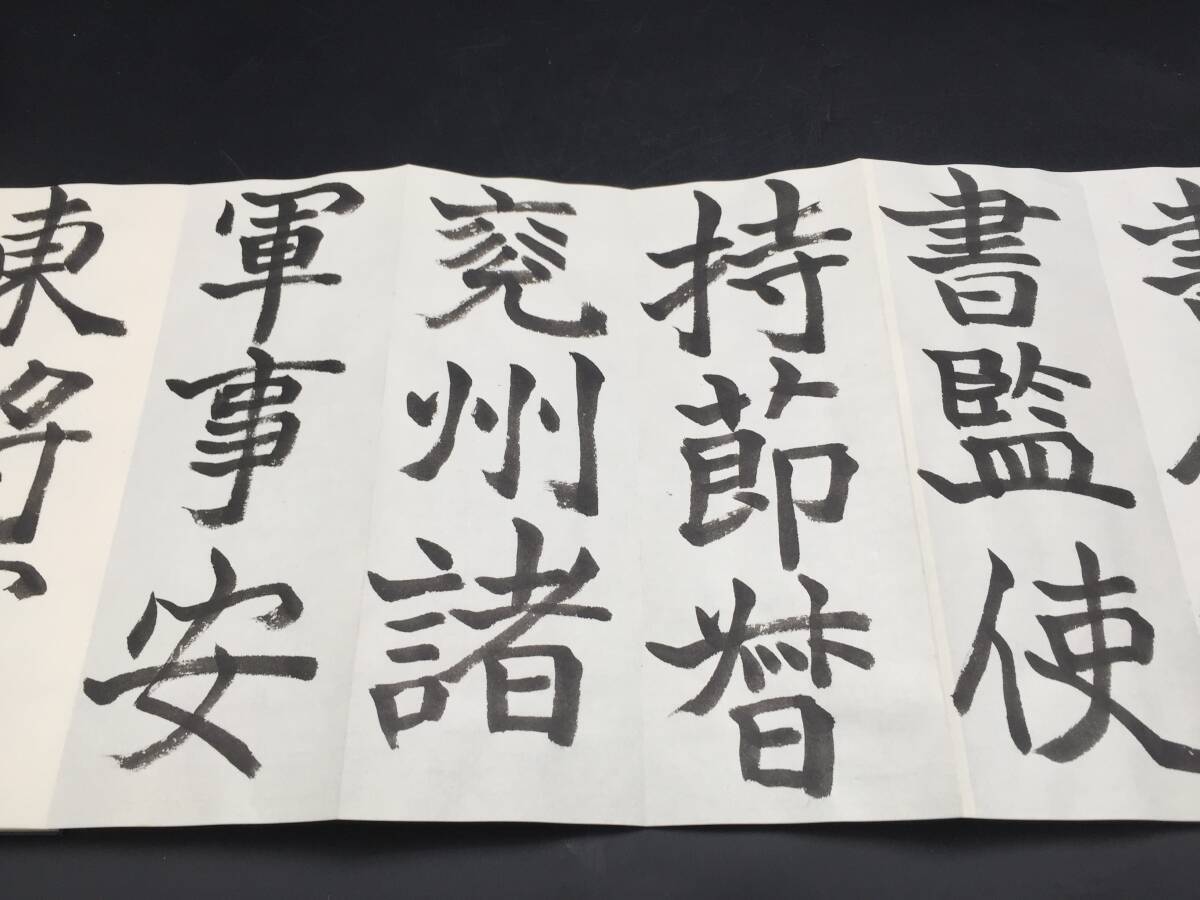 書監使
持節督
兗州諸
軍事安
東將